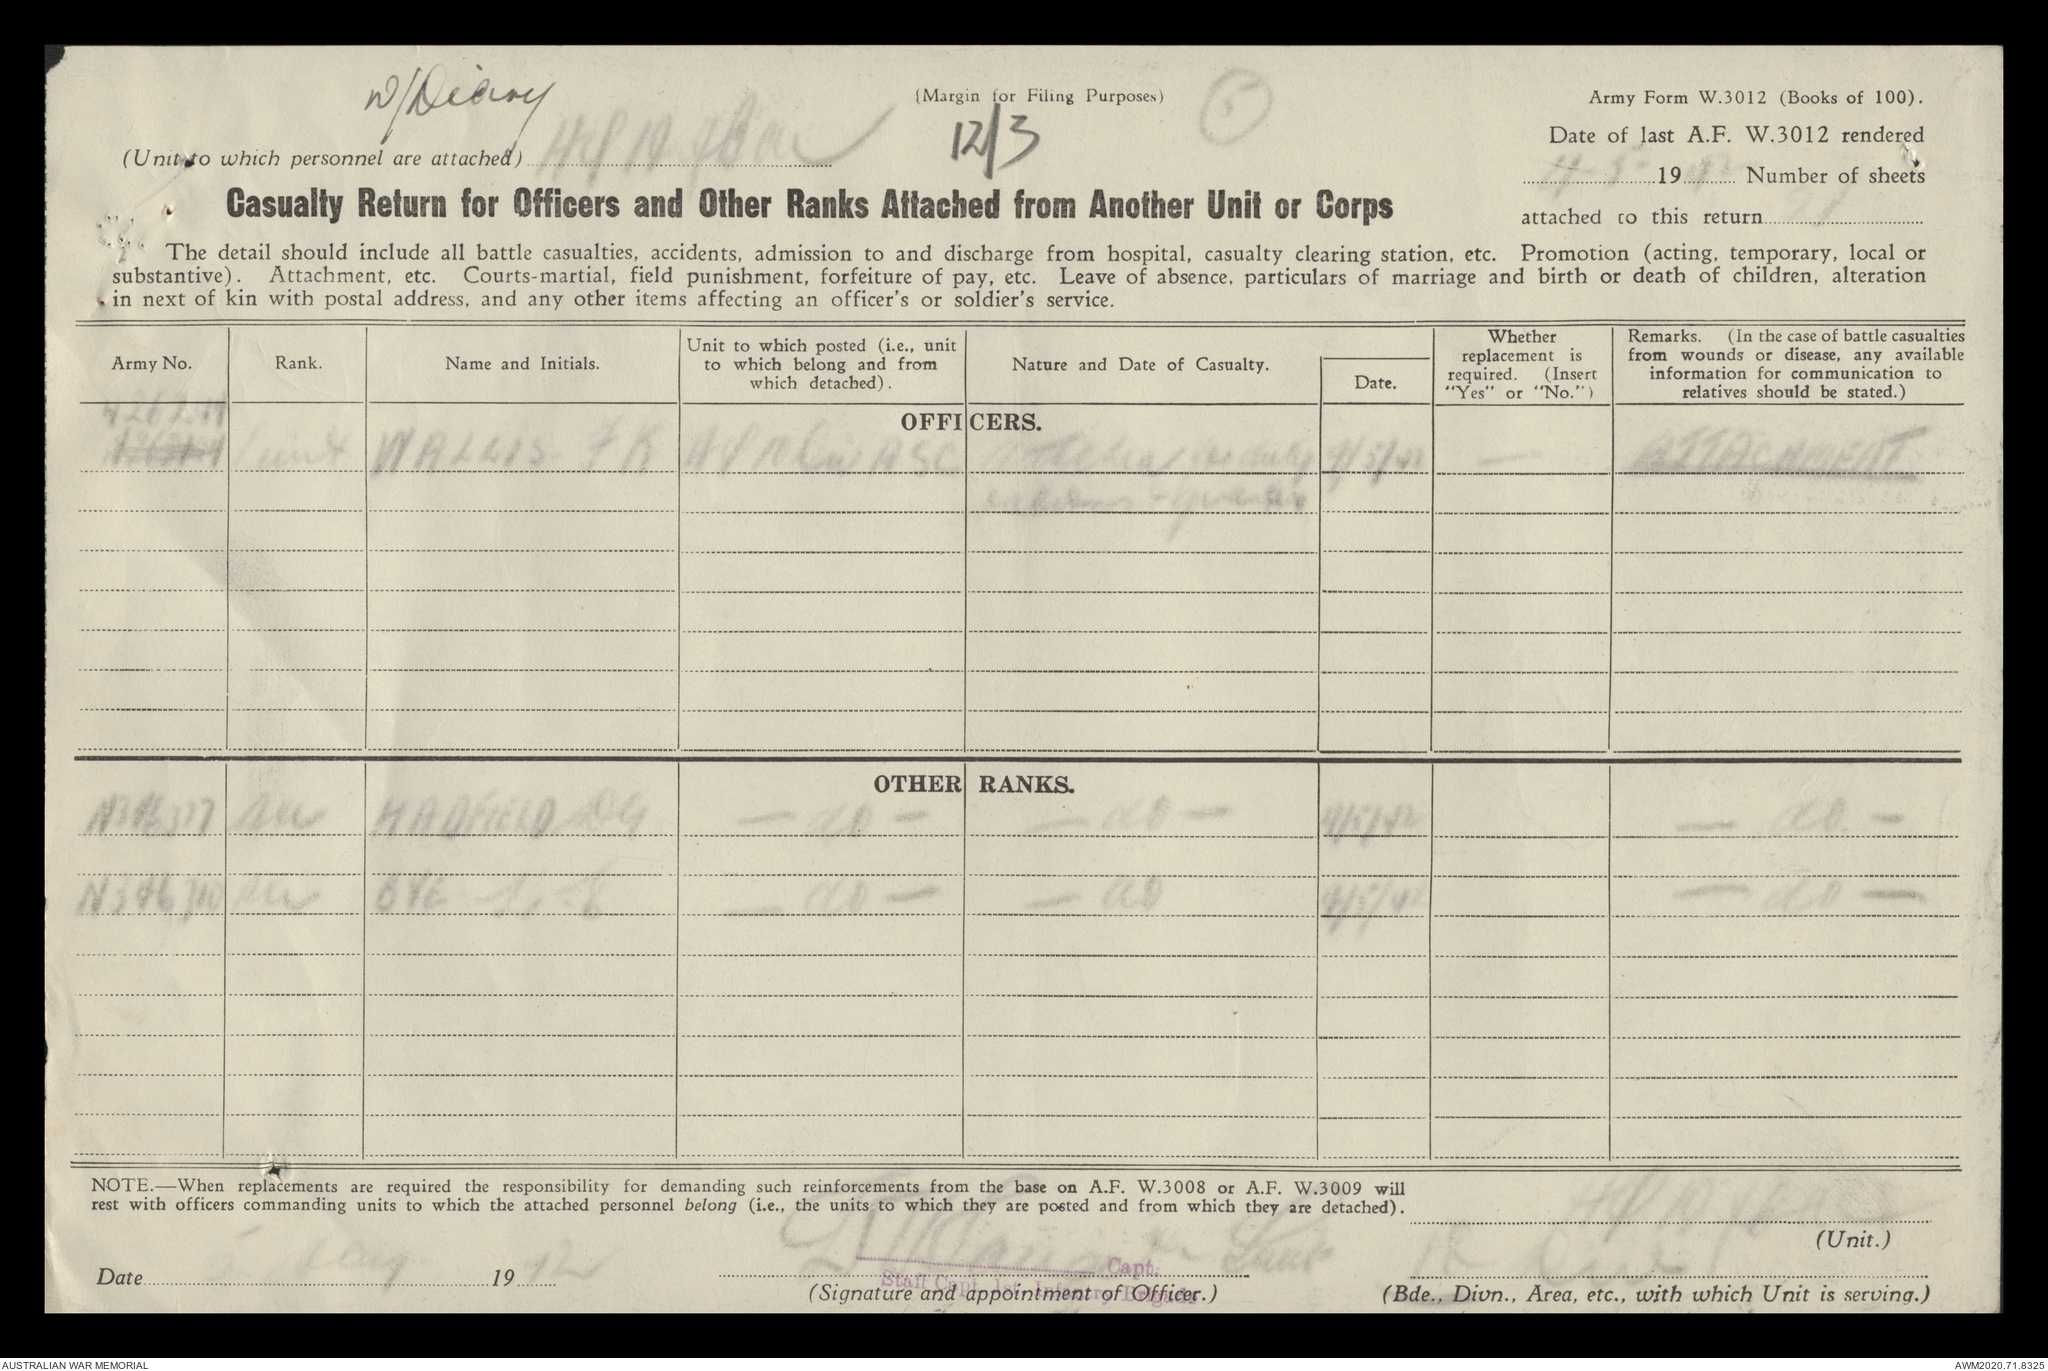 W/Diary
(Margin for Filing Purposes)
5
Army Form W.3012 (Books of 100).
12/3
Date of last A.F. W.3012 rendered
(Unit to which personnel are attached)
19 Number of sheets
Casualty Return for Officers and Other Ranks Attached from Another Unit or Corps
attached to this return
The detail should include all battle casualties, accidents, admission to and discharge from hospital, casualty clearing station, etc. Promotion (acting, temporary, local or
substantive). Attachment, etc. Courts-martial, field punishment, forfeiture of pay, etc. Leave of absence, particulars of marriage and birth or death of children, alteration
in next of kin with postal address, and any other items affecting an officer's or soldier's service.
Army No.
Rank.
Name and Initials.
Unit to which posted (i.e., unit
to which belong and from
which detached).
Nature and Date of Casualty.
Date.
Whether
replacement is
required. (Insert
"Yes" or "No.")
Remarks. (In the case of battle casualties
from wounds or disease, any available
information for communication to
relatives should be stated.)
OFFICERS.
Lieut WALLIS F K ASC 4/5/42 — ATTACHMENT
OTHER RANKS.
HADFIELD DG — do — — do — 4/5/42 — do —
BYE — do — — do 4/5/42 — do —
NOTE.—When replacements are required the responsibility for demanding such reinforcements from the base on A.F. W.3008 or A.F. W.3009 will
rest with officers commanding units to which the attached personnel belong (i.e., the units to which they are posted and from which they are detached).
(Unit.)
Lieut
Capt.
Date 5 May 1942
Staff Capt. 1st. Infantry Brigade
(Signature and appointment of Officer.)
(Bde., Divn., Area, etc., with which Unit is serving.)
AUSTRALIAN WAR MEMORIAL
AWM2020.71.8325